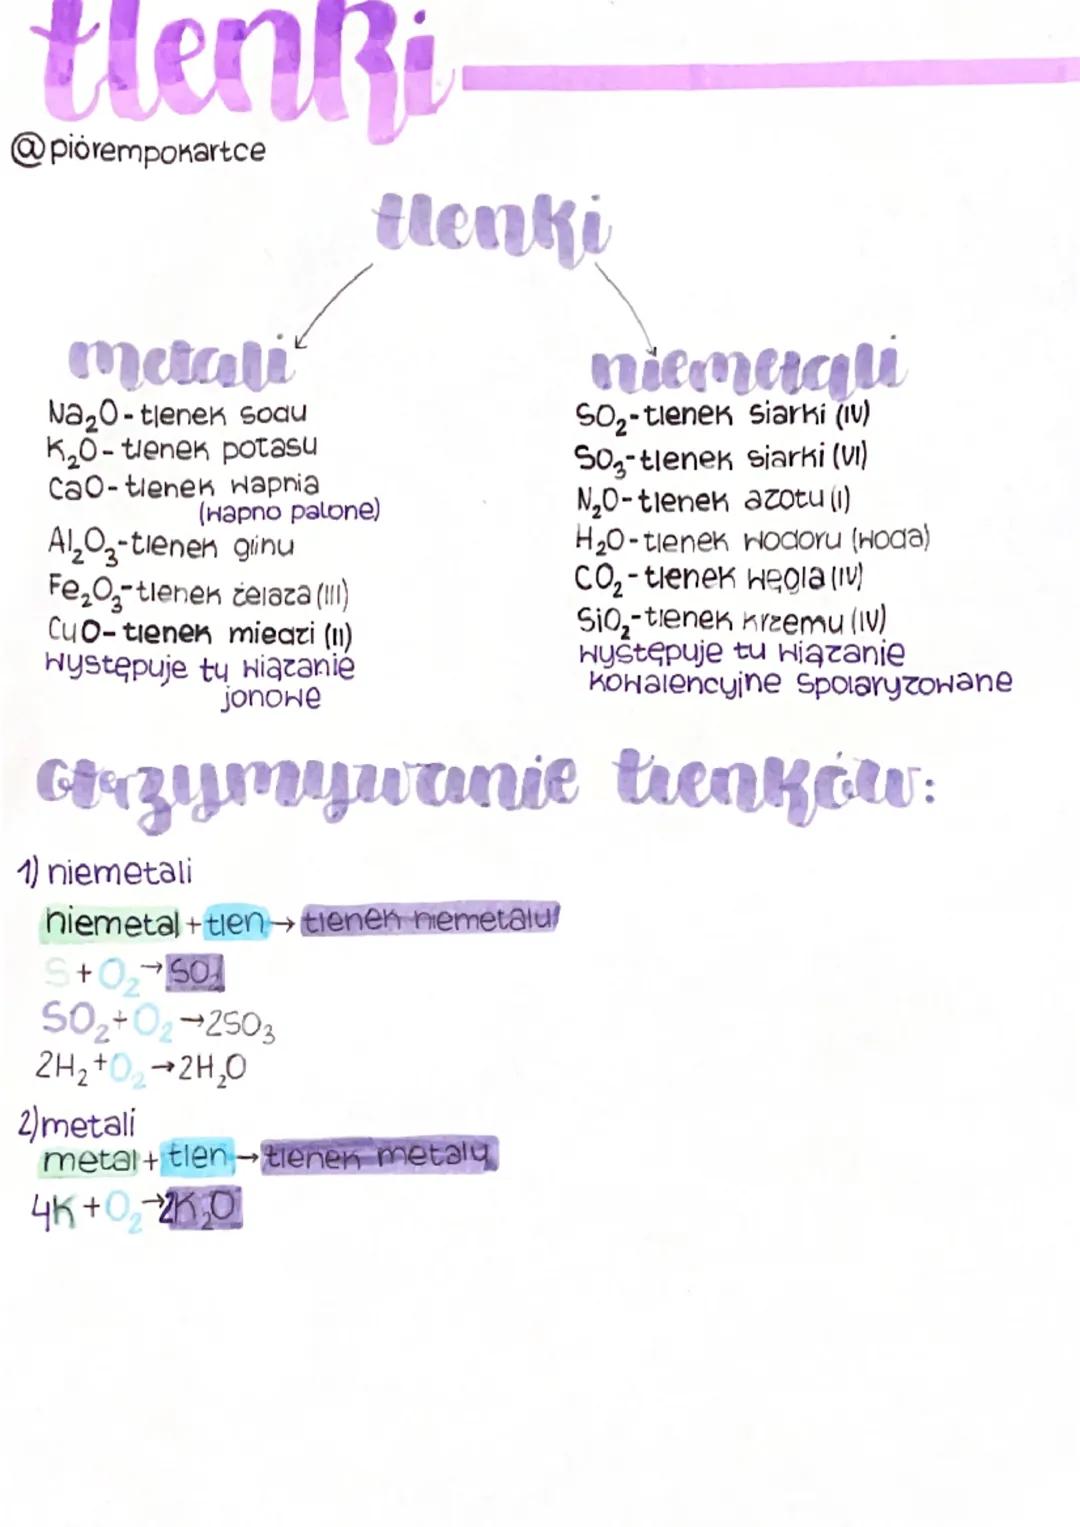 tlenki
@piórempokartce
tlenki
metali
Na₂O - tlenek sodu
K₂O - tlenek potasu
CaO - tlenek wapnia
(wapno palone)
Al₂O₃ - tlenek glinu
Fe₂O₃ - tlenek żelaza (III)
CuO - tlenek miedzi (II)
występuje tu wiązanie
jonowe
niemetali
SO₂ - tlenek siarki (IV)
SO₃ - tlenek siarki (VI)
N₂O - tlenek azotu (I)
H₂O - tlenek wodoru (woda)
CO₂ - tlenek węgla (IV)
SiO₂ - tlenek krzemu (IV)
występuje tu wiązanie
kowalencyjne spolaryzowane
otrzymywanie tlenków:
1) niemetali
niemetal + tlen → tlenek niemetalu
S + O₂ → SO₂
SO₂ + O₂ → 2SO₃
2H₂ + O₂ → 2H₂O
2) metali
metal + tlen → tlenek metalu
4K + O₂ → 2K₂O